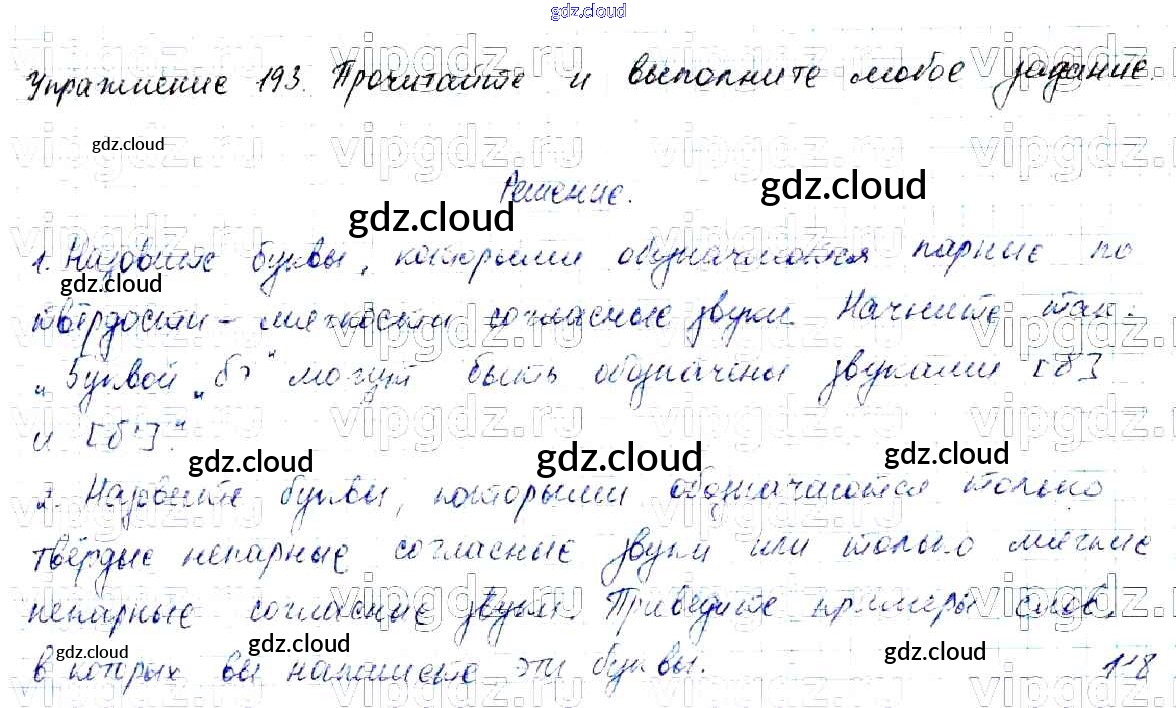 gdz.cloud
Упражнение 193. Прочитайте и выполните любое задание.
gdz.cloud
Решение.
gdz.cloud
gdz.cloud
1. Назовите буквы, которыми обозначаются парные по
gdz.cloud
твёрдости – мягкости согласные звуки. Начните так:
„Буквой „бэ“ могут быть обозначены звуками [б]
и [б']“.
gdz.cloud gdz.cloud gdz.cloud
2. Назовите буквы, которыми обозначаются только
твёрдые непарные согласные звуки или только мягкие
непарные согласные звуки. Приведите примеры слов,
gdz.cloud gdz.cloud gdz.cloud
в которых вы напишете эти буквы. 118